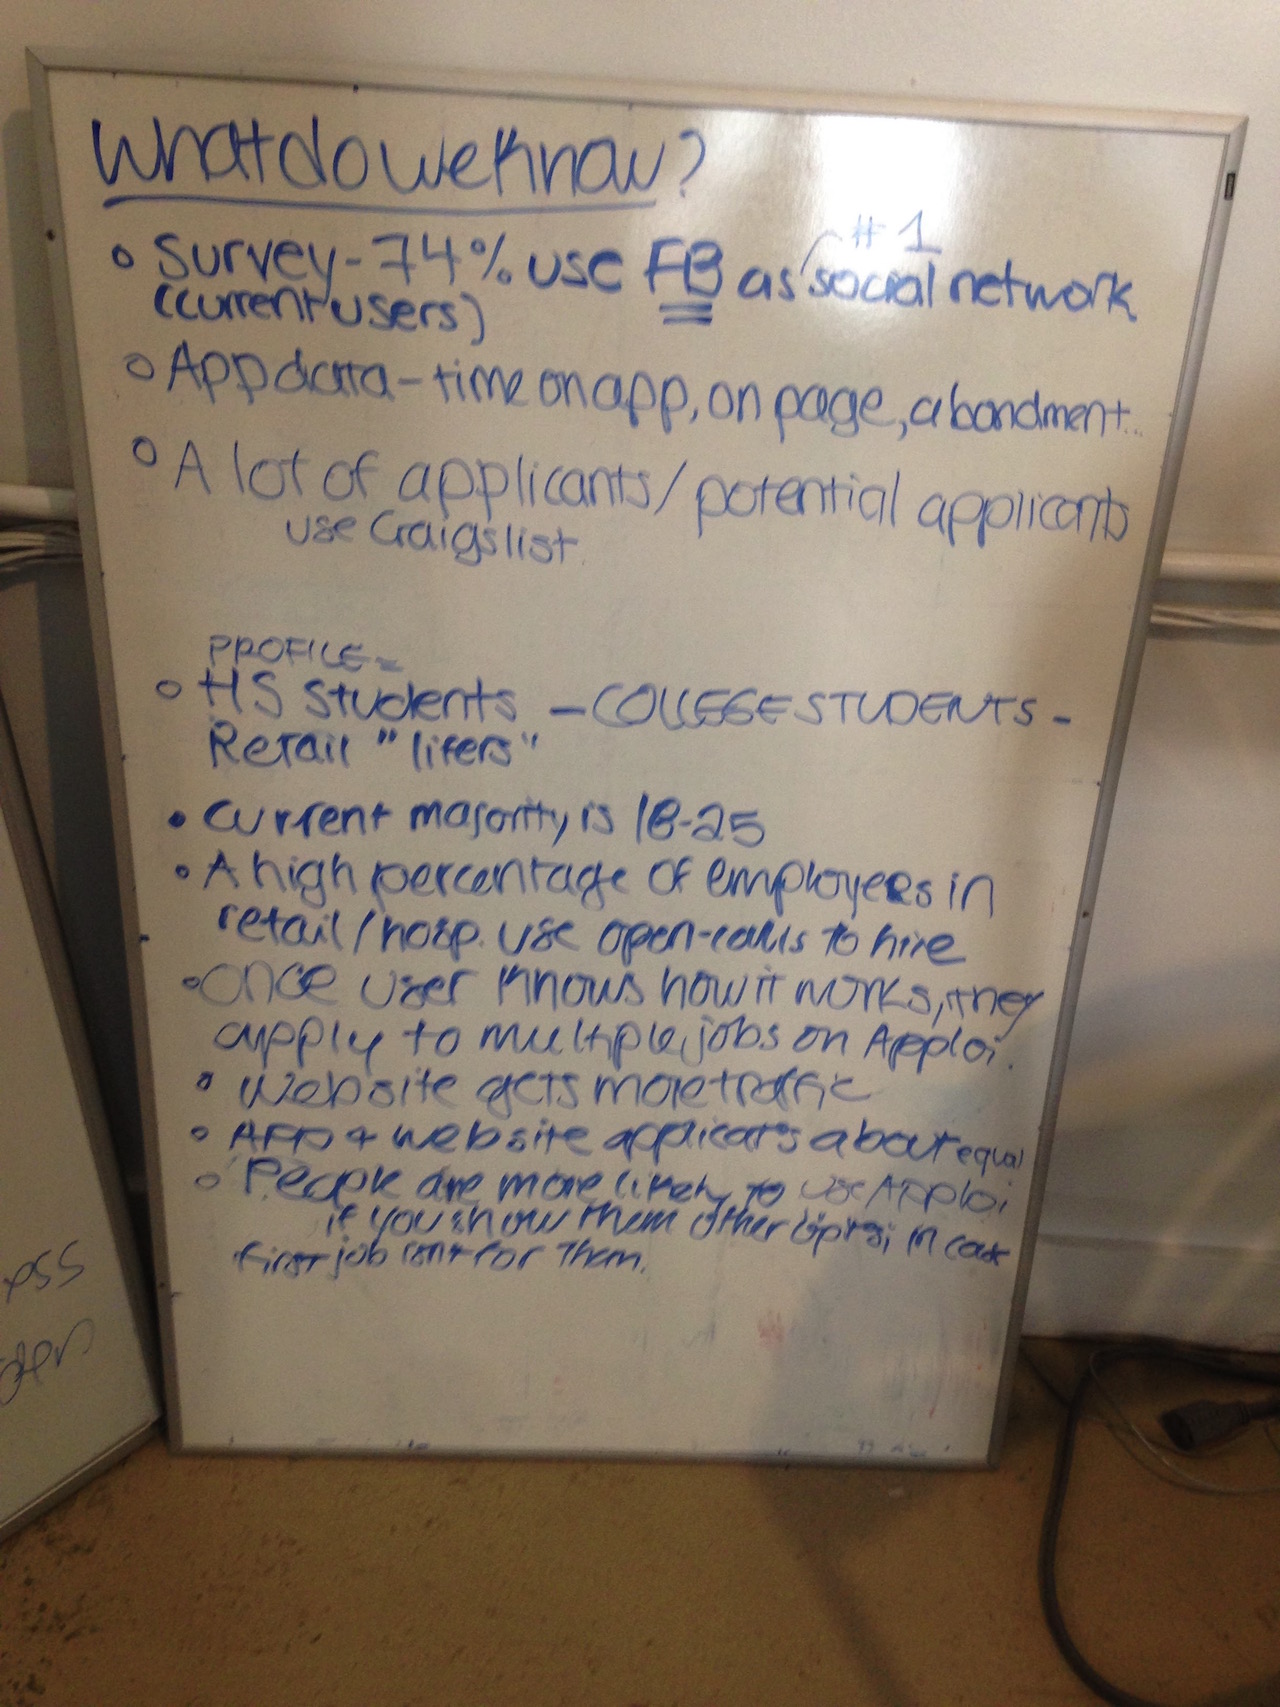 What do we know?
#1
o Survey - 74% use FB as social network
(current users)
o App data - time on app, on page, abandment...
o A lot of applicants/potential applicants
use Craigslist.
PROFILE =
o HS students - COLLEGE STUDENTS -
Retail "lifers"
• current majority is 18-25
• A high percentage of employees in
retail/hosp. use open-calls to hire
• Once user knows how it works, they
apply to multiple jobs on Apploi.
• Website gets more traffic
o App + website applicats about equal
o People are more likely to use Apploi
if you show them other in case
first job isnt for them.